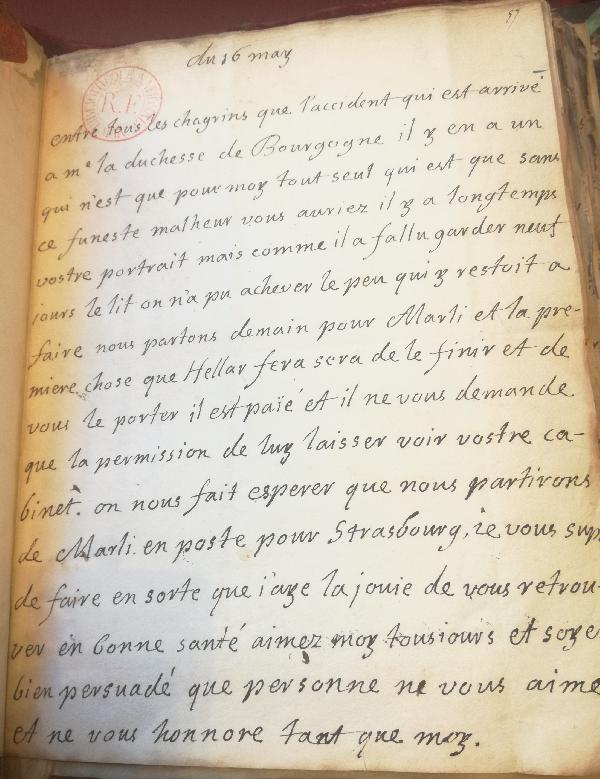 57
du 16 may
entre tous les chagrins que l'accident qui est arrivé
a me la duchesse de Bourgogne il y en a un
qui n'est que pour moy tout seul qui est que sans
ce funeste malheur vous auriez il y a longtemps
vostre portrait mais comme il a fallu garder neuf
jours le lit on n'a pu achever le peu qui y restoit a
faire nous partons demain pour Marli et la pre-
miere chose que Hellar fera sera de le finir et de
vous le porter il est païé et il ne vous demande
que la permission de luy laisser voir vostre ca-
binet. on nous fait esperer que nous partirons
de Marli en poste pour Strasbourg, ie vous sup
de faire en sorte que i'aye la jouie de vous retrou-
ver en bonne santé aimez moy tousiours et soye
bien persuadé que personne ne vous aime
et ne vous honnore tant que moy.
R.F.